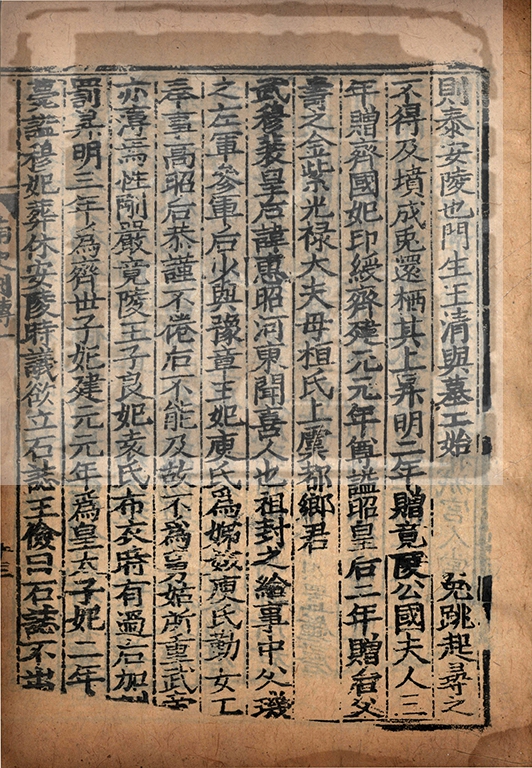 則泰安陵也門生王清與墓工始　　　兔跳起尋之
不得及墳成兎還栖其上昇明二年贈竟陵公國夫人三
年贈齊國妃印綬齊建元元年尊謚昭皇后二年贈后父
壽之金紫光禄大夫母桓氏上虞都鄉君
武穆裴皇后諱惠昭河東聞喜人也祖封之給事中父璣
之左軍參軍后少與豫章王妃庾氏為娣姒庾氏勤女工
奉事高昭后恭謹不倦后不能及故不為舅姑所重武帝
亦薄焉性剛嚴竟陵王子良妃袁氏布衣時有過后加訓
罰昇明三年為齊世子妃建元元年為皇太子妃二年
薨謚穆妃葬休安陵時議欲立石誌王儉曰石誌不出